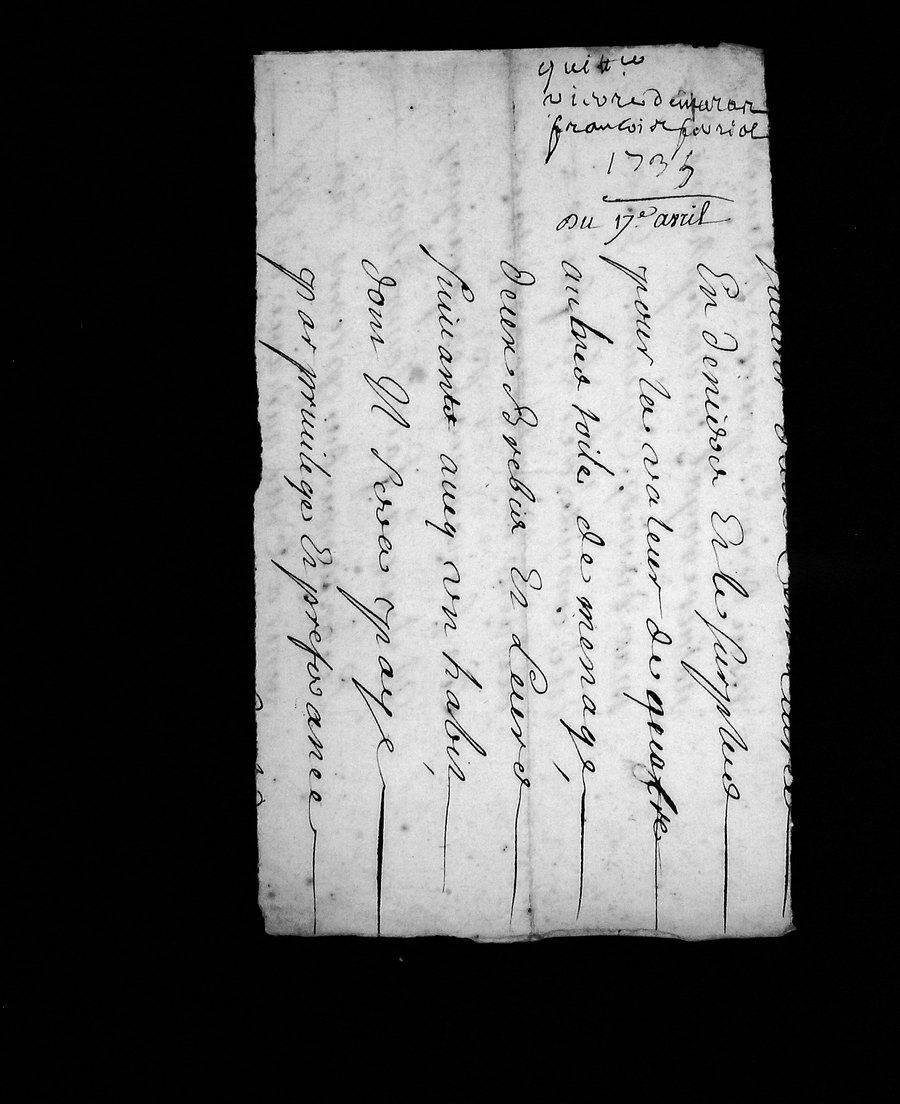 quitt.ce
1735
du 17.e avril
En deniers Et le surplus
pour la valeur de quatre
aulnes toile de menage,
deux Brebis Et Leurs
suivants aueq vn habit,
dont Il sera paye
par priuilege Et preferance